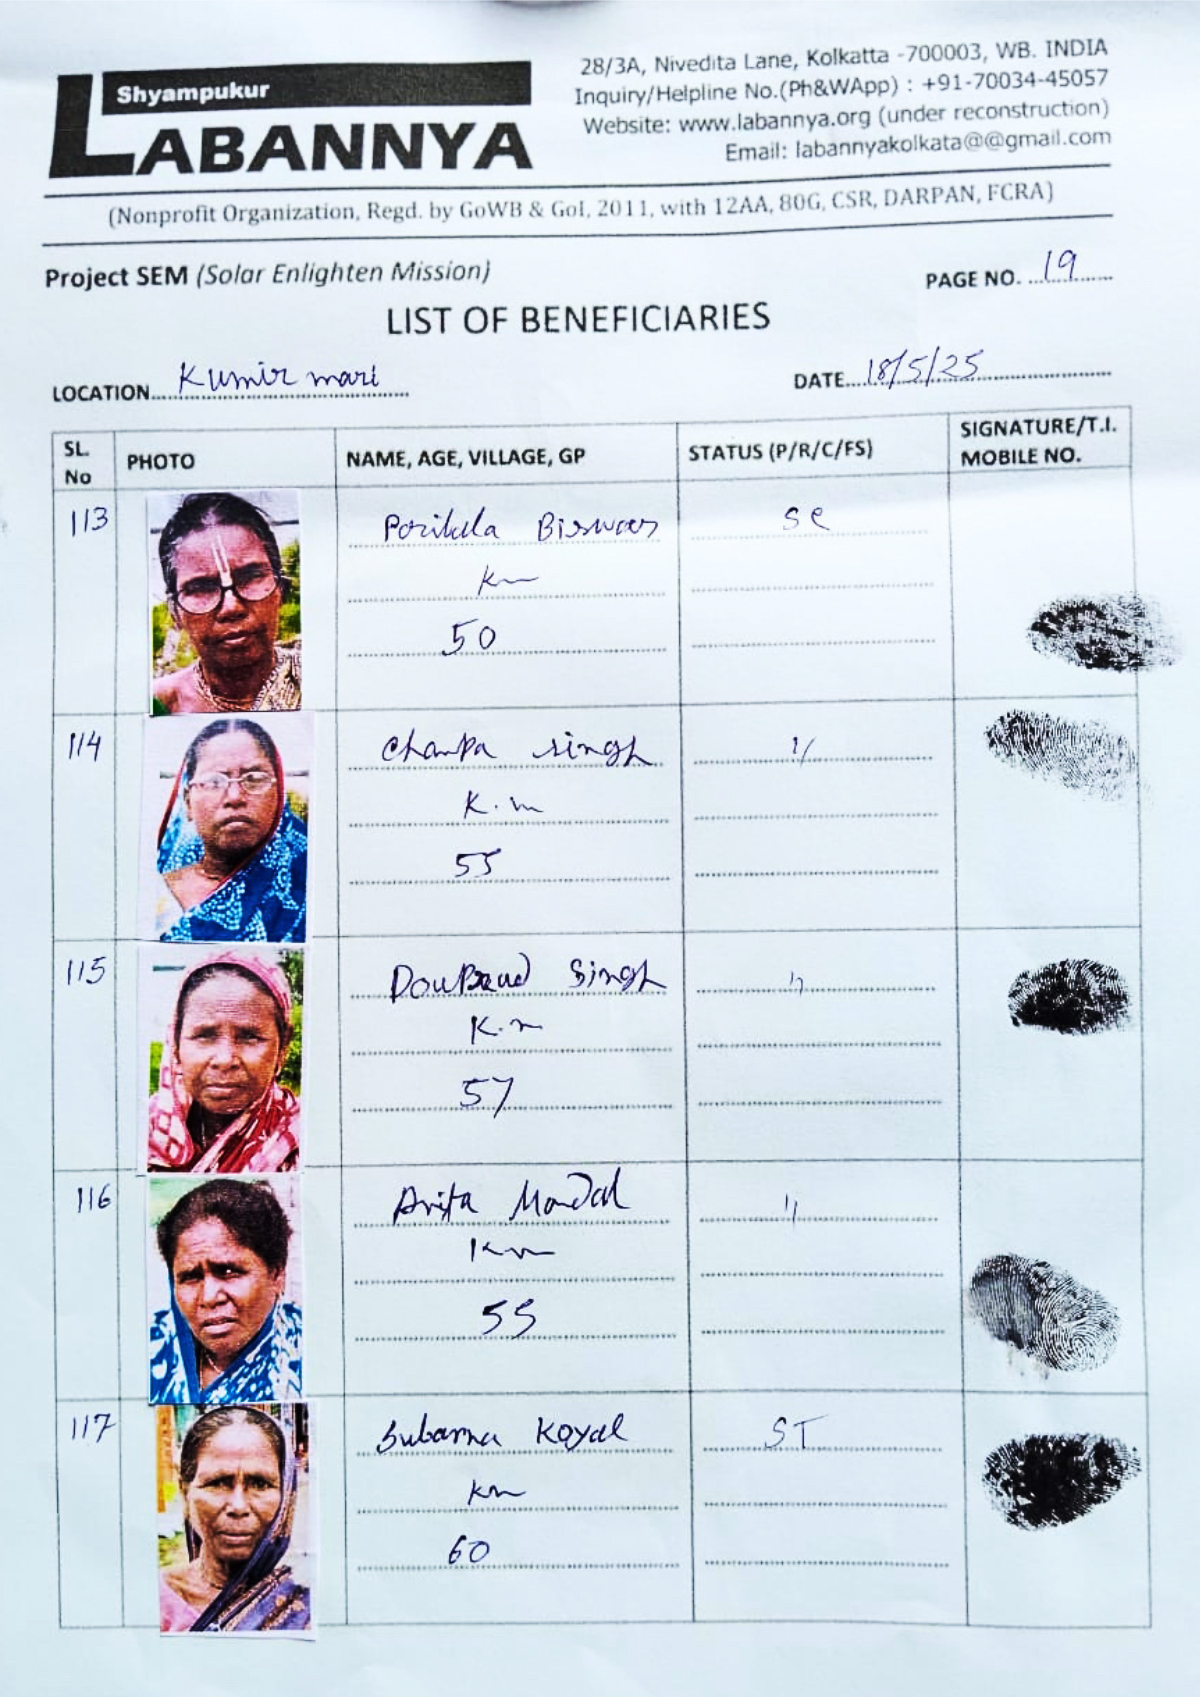 Shyampukur
LABANNYA
28/3A, Nivedita Lane, Kolkatta -700003, WB. INDIA
Inquiry/Helpline No.(Ph&WApp) : +91-70034-45057
Website: www.labannya.org (under reconstruction)
Email: labannyakolkata@@gmail.com
(Nonprofit Organization, Regd. by GoWB & GoI, 2011, with 12AA, 80G, CSR, DARPAN, FCRA)
Project SEM (Solar Enlighten Mission)
PAGE NO. 19
LIST OF BENEFICIARIES
LOCATION Kumir mari
DATE 18/5/25
SL. No
PHOTO
NAME, AGE, VILLAGE, GP
STATUS (P/R/C/FS)
SIGNATURE/T.I. MOBILE NO.
113
Biswas
SC
Km
50
114
Champa Singh
K.m
55
115
Singh
K.m
57
116
Mondal
Km
55
117
Subarna Koyal
ST
Km
60